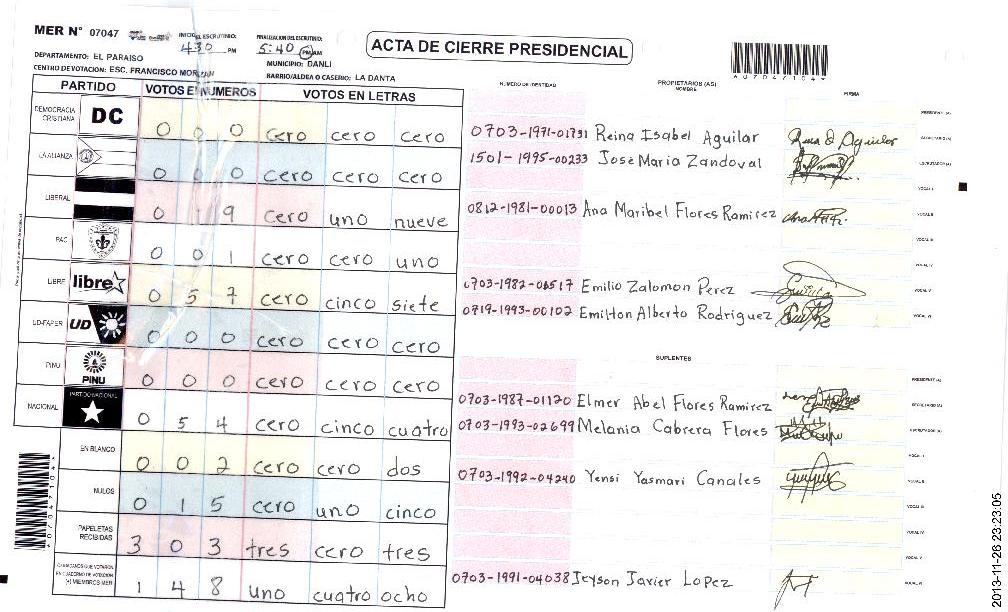 MER N° 07047
INICIO DEL ESCRUTINIO:
4:30 PM
FINALIZACION DEL ESCRUTINIO:
5:40 PM AM
ACTA DE CIERRE PRESIDENCIAL
A07047104
DEPARTAMENTO: EL PARAISO
MUNICIPIO: DANLI
CENTRO DE VOTACION: ESC. FRANCISCO MORAZAN
BARRIO/ALDEA O CASERIO: LA DANTA
PARTIDO VOTOS EN NUMEROS VOTOS EN LETRAS
NUMERO DE IDENTIDAD PROPIETARIOS (AS) NOMBRE FIRMA
DEMOCRACIA CRISTIANA DC 0 0 0 cero cero cero
LA ALIANZA 0 0 0 cero cero cero
LIBERAL 0 1 9 cero uno nueve
PAC 0 0 1 cero cero uno
LIBRE libre 0 5 7 cero cinco siete
UD-FAPER UD 0 0 0 cero cero cero
PINU PINU 0 0 0 cero cero cero
NACIONAL PARTIDO NACIONAL 0 5 4 cero cinco cuatro
EN BLANCO 0 0 2 cero cero dos
NULOS 0 1 5 cero uno cinco
PAPELETAS RECIBIDAS 3 0 3 tres cero tres
CIUDADANOS QUE VOTARON EN CUADERNO DE VOTACION (+) MIEMBROS MER 1 4 8 uno cuatro ocho
PRESIDENTE (A)
0703-1971-01731 Reina Isabel Aguilar SECRETARIO (A)
1501-1995-00233 Jose Maria Zandoval ESCRUTADOR (A)
VOCAL I
0812-1981-00013 Ana Maribel Flores Ramirez VOCAL II
VOCAL III
VOCAL IV
0703-1982-06517 Emilio Zalomon Perez VOCAL V
0719-1993-00102 Emilton Alberto Rodriguez VOCAL VI
SUPLENTES
PRESIDENTE (A)
0703-1987-01120 Elmer Abel Flores Ramirez SECRETARIO (A)
0703-1993-02699 Melania Cabrera Flores ESCRUTADOR (A)
VOCAL I
0703-1992-04240 Yensi Yasmari Canales VOCAL II
VOCAL III
VOCAL IV
VOCAL V
0703-1991-04038 Jeyson Javier Lopez VOCAL VI
A07047104
2013-11-26 23:23:05